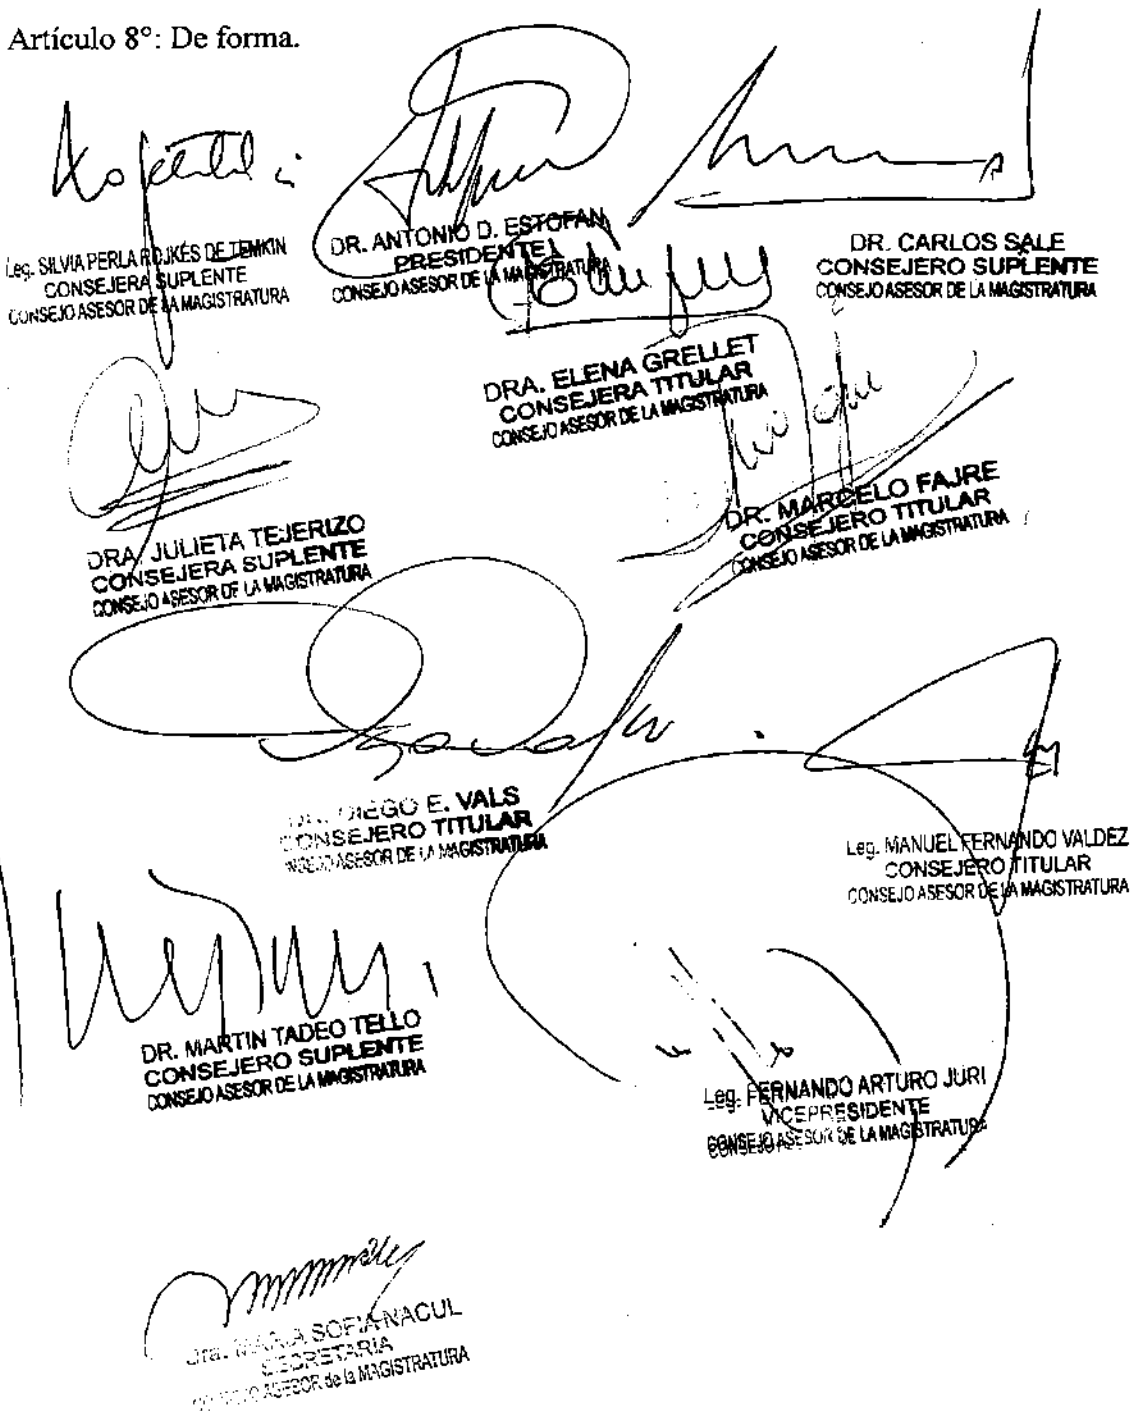 Artículo 8°: De forma.
Leg. SILVIA PERLA ROJKÉS DE TEMKIN
CONSEJERA SUPLENTE
CONSEJO ASESOR DE LA MAGISTRATURA
DR. ANTONIO D. ESTOFAN
PRESIDENTE
CONSEJO ASESOR DE LA MAGISTRATURA
DR. CARLOS SALE
CONSEJERO SUPLENTE
CONSEJO ASESOR DE LA MAGISTRATURA
DRA. ELENA GRELLET
CONSEJERA TITULAR
CONSEJO ASESOR DE LA MAGISTRATURA
DR. MARCELO FAJRE
CONSEJERO TITULAR
CONSEJO ASESOR DE LA MAGISTRATURA
DRA. JULIETA TEJERIZO
CONSEJERA SUPLENTE
CONSEJO ASESOR DE LA MAGISTRATURA
DIEGO E. VALS
CONSEJERO TITULAR
CONSEJO ASESOR DE LA MAGISTRATURA
Leg. MANUEL FERNANDO VALDEZ
CONSEJERO TITULAR
CONSEJO ASESOR DE LA MAGISTRATURA
DR. MARTIN TADEO TELLO
CONSEJERO SUPLENTE
CONSEJO ASESOR DE LA MAGISTRATURA
Leg. FERNANDO ARTURO JURI
VICEPRESIDENTE
CONSEJO ASESOR DE LA MAGISTRATURA
Dra. MARIA SOFIA NACUL
SECRETARIA
CONSEJO ASESOR de la MAGISTRATURA